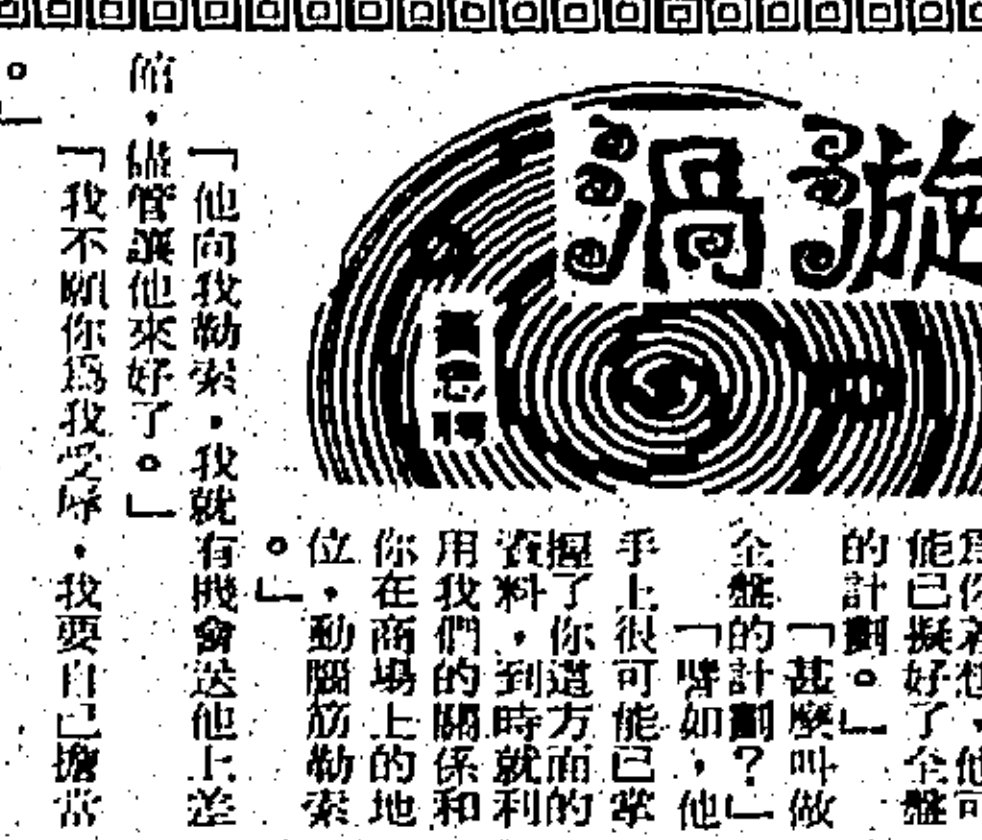 漩渦
黃思騁
為你着想，他可
能已擬好了全盤
的計劃。」
「甚麼叫做
全盤的計劃？」
「譬如，他
手上很可能已掌
握了你這方面的
資料，到時就利
用我們的關係和
你在商場上的地
位，動腦筋勒索
。」
「他向我勒索，我就有機會送他上差
館，儘管讓他來好了。」
「我不願你爲我受辱，我要自己擔當
。」